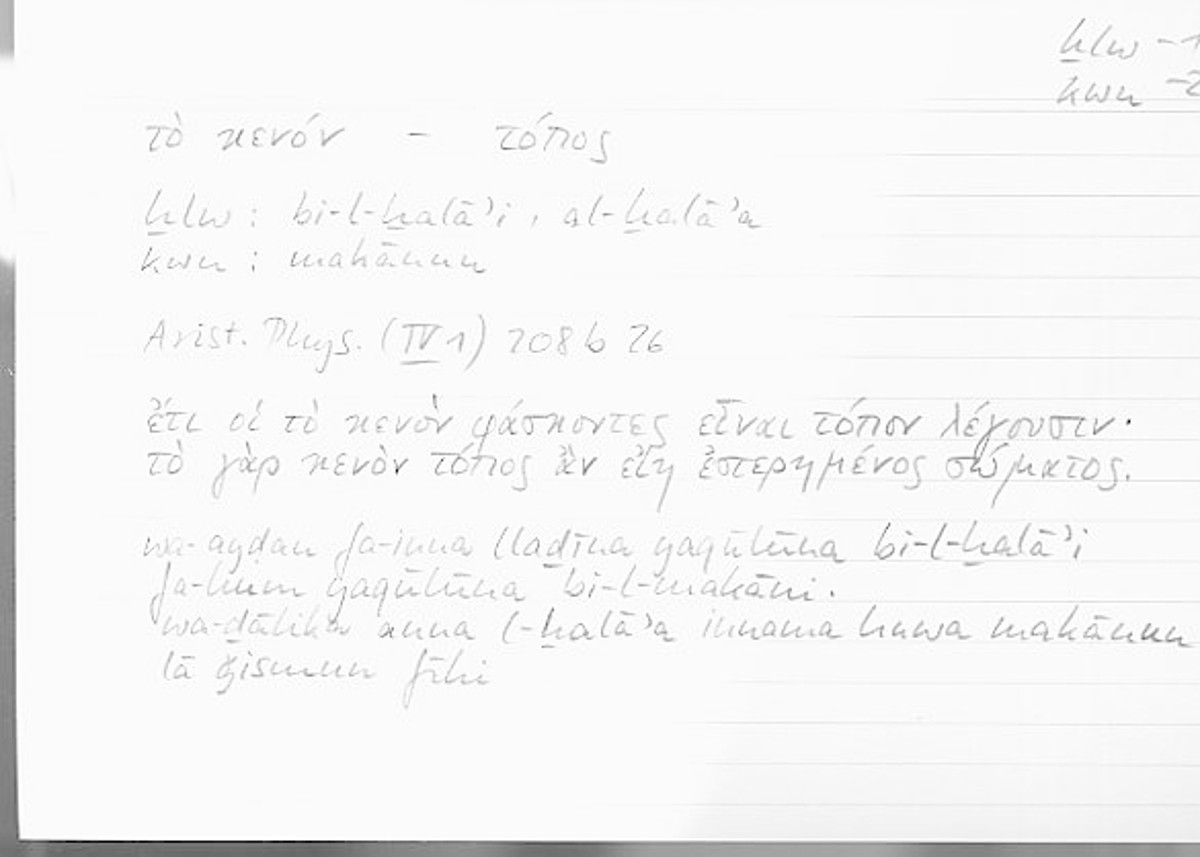 ḫlw - 1
kwn - 2
τὸ κενόν - τόπος
ḫlw : bi-l-ḫalā'i , al-ḫalā'a
kwn : makānun
Arist. Phys. (IV 1) 208 b 26
ἔτι οἱ τὸ κενὸν φάσκοντες εἶναι τόπον λέγουσιν·
τὸ γὰρ κενὸν τόπος ἂν εἴη ἐστερημένος σώματος.
wa-ayḍan fa-inna lladīna yaqūlūna bi-l-ḫalā'i
fa-hum yaqūlūna bi-l-makāni.
wa-ḏālika anna l-ḫalā'a innama huwa makānun
lā ǧismun fīhi